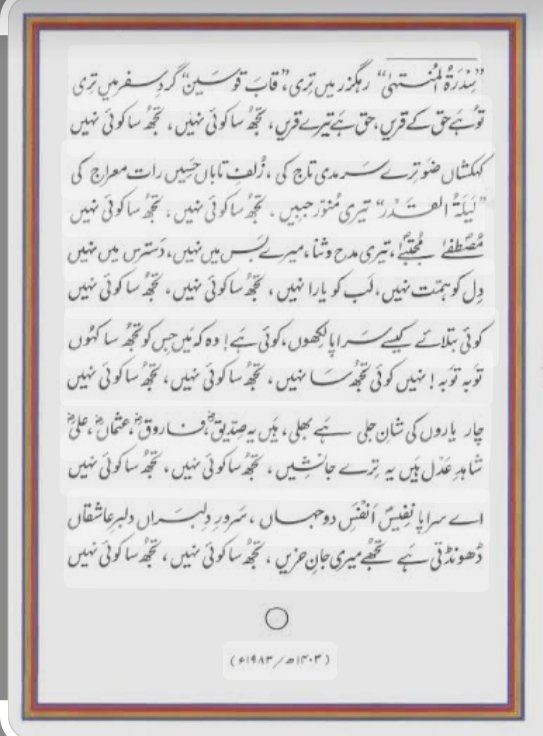 ”سِدرَۃُ المُنتہیٰ“ رہگزر میں تِری، ”قابَ قوسَین“ گردِ سفر میں تِری
تُو ہے حق کے قریں، حق ہے تیرے قریں، تجھ سا کوئی نہیں، تجھ سا کوئی نہیں
کہکشاں ضَو تِرے سرمدی تاج کی، زُلفِ تاباں حَسِیں رات معراج کی
”لَیلَۃُ القَدر“ تیری مُنوّر جبیں، تجھ سا کوئی نہیں، تجھ سا کوئی نہیں
مُصطفٰےؐ مُجتبٰےؐ، تیری مدح و ثنا، میرے بس میں نہیں، دَسترس میں نہیں
دِل کو ہِمّت نہیں، لَب کو یارا نہیں، تجھ سا کوئی نہیں، تجھ سا کوئی نہیں
کوئی بتلائے کیسے سراپا لِکھوں، کوئی ہے! وہ کہ مَیں جِس کو تجھ سا کہُوں
توبہ توبہ! نہیں کوئی تجھ سا نہیں، تجھ سا کوئی نہیں، تجھ سا کوئی نہیں
چار یاروں کی شان جلی ہے بھلی، ہیں یہ صِدّیقؓ، فاروقؓ، عثمانؓ، علیؓ
شاہدِ عَدل ہیں یہ تِرے جانشِیں، تجھ سا کوئی نہیں، تجھ سا کوئی نہیں
اے سراپا نفِیس اَنفَسِ دو جہاں، سَرورِ دِلبراں دلبرِ عاشقاں
ڈھونڈتی ہے تجھے میری جانِ حزیں، تجھ سا کوئی نہیں، تجھ سا کوئی نہیں
(۱۴۰۳ھ/۱۹۸۳ء)